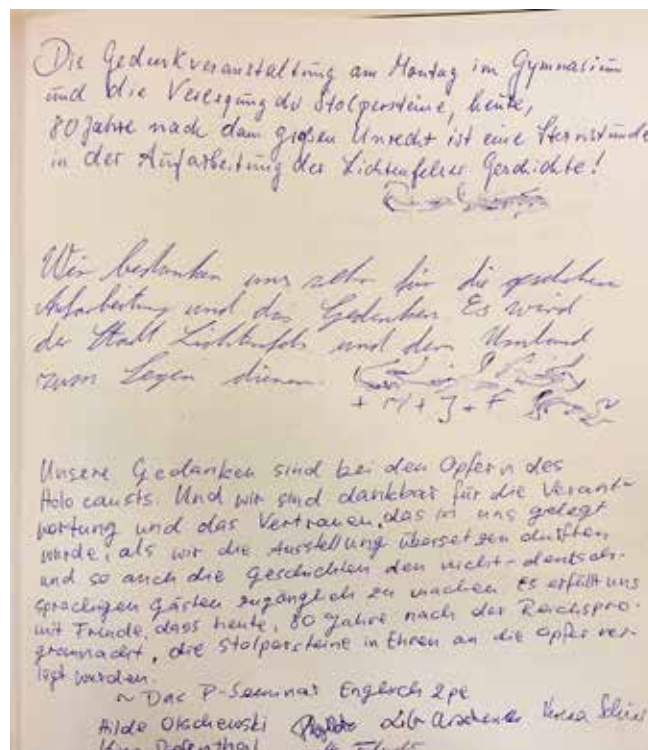 Die Gedenkveranstaltung am Montag im Gymnasium
und die Verlegung der Stolpersteine, heute,
80 Jahre nach dem großen Unrecht ist eine Sternstunde
in der Aufarbeitung der Lichtenfelser Geschichte!
Wir bedanken uns sehr für die
Aufarbeitung und das Gedenken. Es wird
der Stadt Lichtenfels und dem Umland
zum Segen dienen.
+ M + J + F
Unsere Gedanken sind bei den Opfern des
Holocausts. Und wir sind dankbar für die Verant-
wortung und das Vertrauen, das in uns gelegt
wurde, als wir die Ausstellung übersetzen durften
und so auch die Geschichten den nicht-deutsch-
sprachigen Gästen zugänglich zu machen. Es erfüllt uns
mit Freude, dass heute, 80 Jahre nach der Reichspro-
gromnacht, die Stolpersteine in Ehren an die Opfer ver-
legt wurden.
~ Das P-Seminar Englisch 2pe
Hilde Olschewski